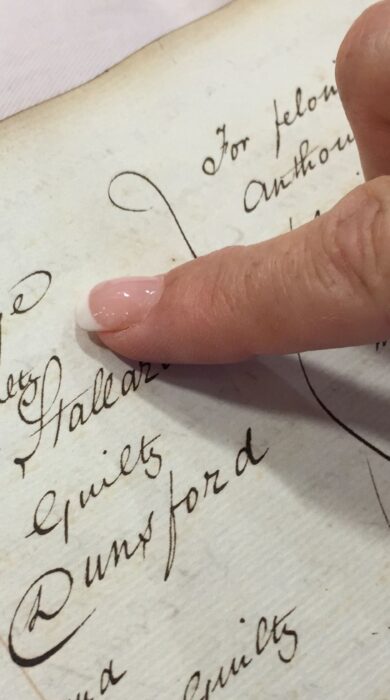 For felon
Anthon
Stallar
Guilty
Dunsford
Guilty